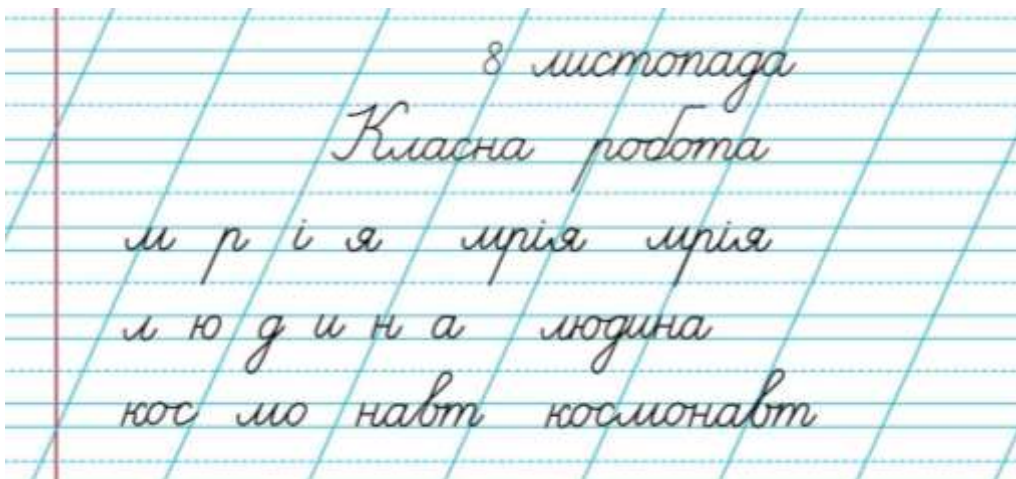 8 листопада
Класна робота
м р і я мрія мрія
л ю д и н а людина
кос мо навт космонавт